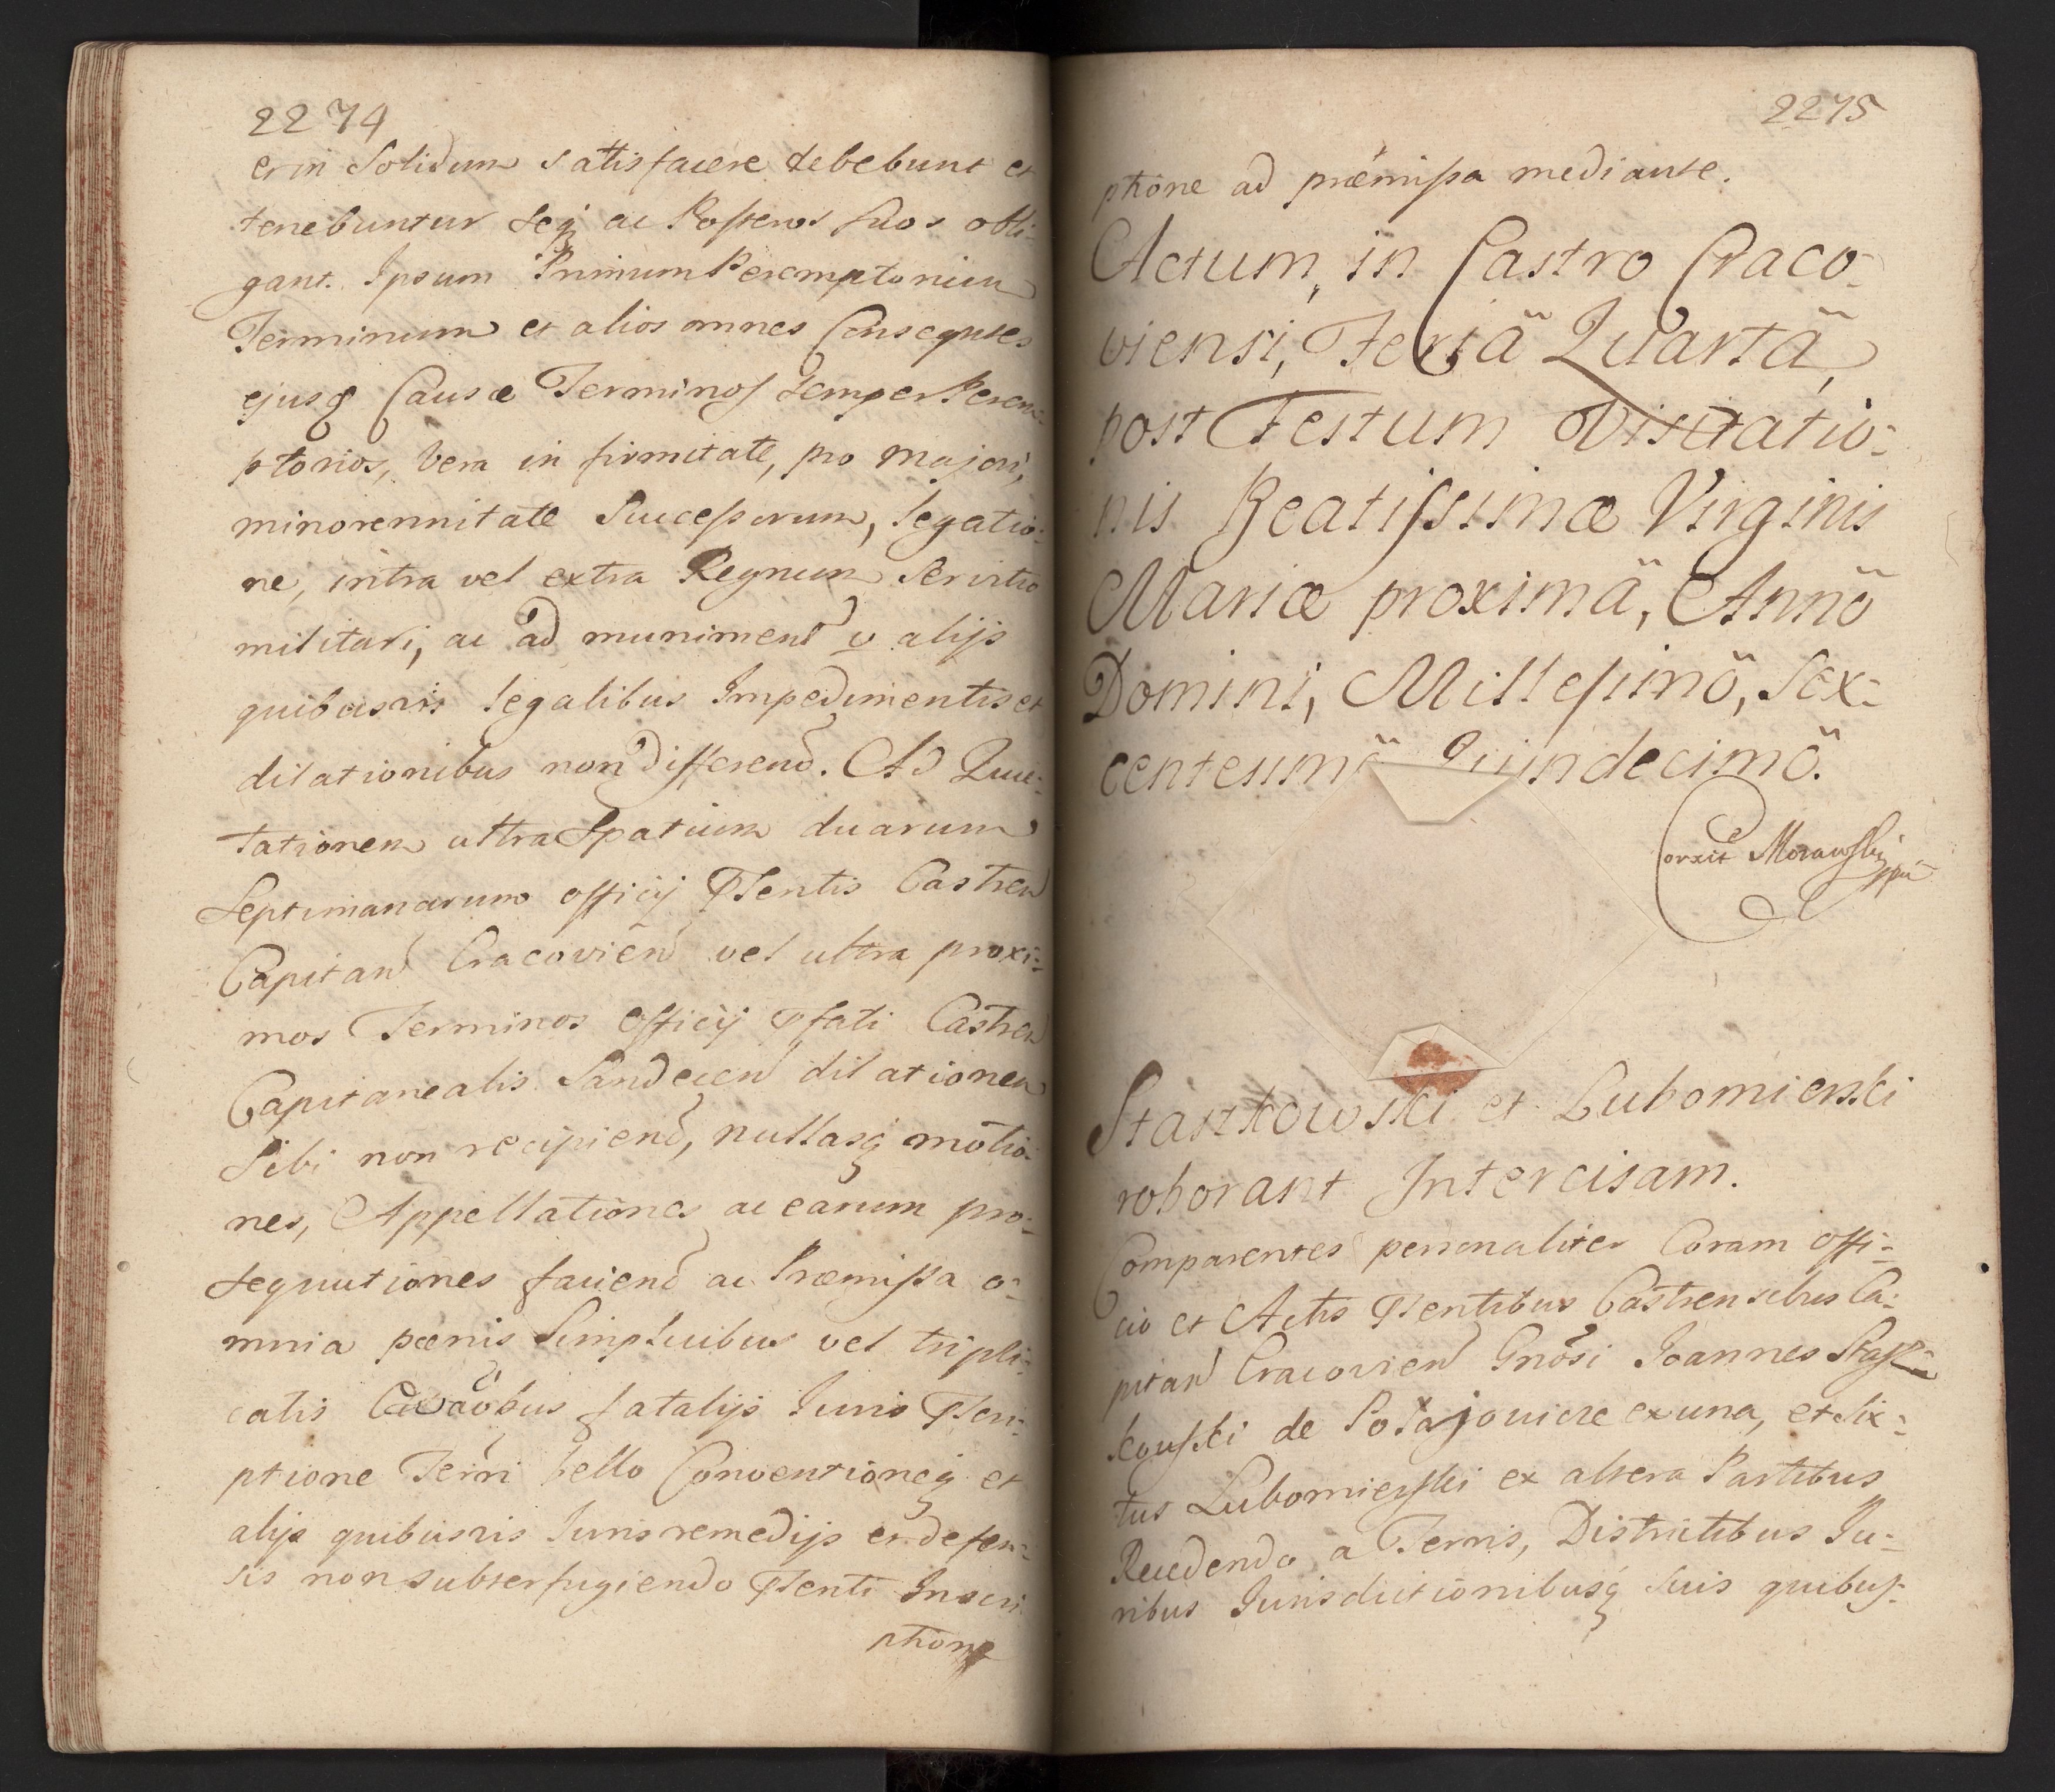 2274
et in Solidum satisfacere debebunt et
tenebuntur seq; ac Posteros suos obli-
gant. Ipsum Primum Peremptorium
Terminum et alios omnes Consequtes
ejusq; Causæ Terminos semper Perem-
ptorios, vera in firmitate, pro majori,
minorennitate Successorum, legatio-
ne, intra vel extra Regnum Servitio
militari, ac ad muniment v alijs
quibusvis legalibus Impedimentis et
dilationibus non differend. Ad Quie-
tationem ultra Spatium duarum
Septimanarum officij Psentis Castren
Capitan Cracovien vel ultra proxi-
mos Terminos officij Pfati Castren
Capitanealis Sandecen dilationem
Sibi non recipiend, nullasq; motio-
nes, Appellationes ac earum pro-
sequutiones faciend ac Præmissa o-
mnia pœnis Simplicibus vel tripli-
catis fatalijs Iuris Pscri-
ptione Terri bello Conventioneq; et
alijs quibusvis Iuris remedijs et defen-
sis non subterfugiendo Psenti Inscri
ptione
2275
ptione ad præmissa mediante.
Actum, in Castro Craco-
viensi, Feria Quarta,
post Festum Visitatio-
nis Beatissimæ Virginis
Mariæ proximâ, Annô
Domini, Millesimô, Sex-
centesimô Quindecimô.
Corxit Morawski mpp
Staszkowski et Lubomierski
roborant Intercisam.
Comparentes personaliter Coram offi-
cio et Actis Psentibus Castrensibus Ca-
pitan Cracovien Gnosi Joannes Stasz-
kowski de ex una, et Six-
tus Lubomierski ex altera Partibus
Recedendo a Terris, Districtibus Ju-
ribus Jurisdictionibusq; suis quibus-